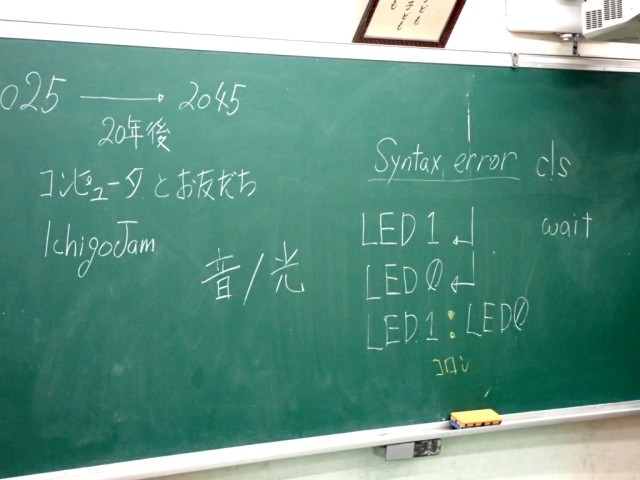 025 → 2045
20年後
コンピュータとお友だち
IchigoJam
音/光
Syntax error cls
LED1↲ wait
LED0↲
LED1:LED0
コロン